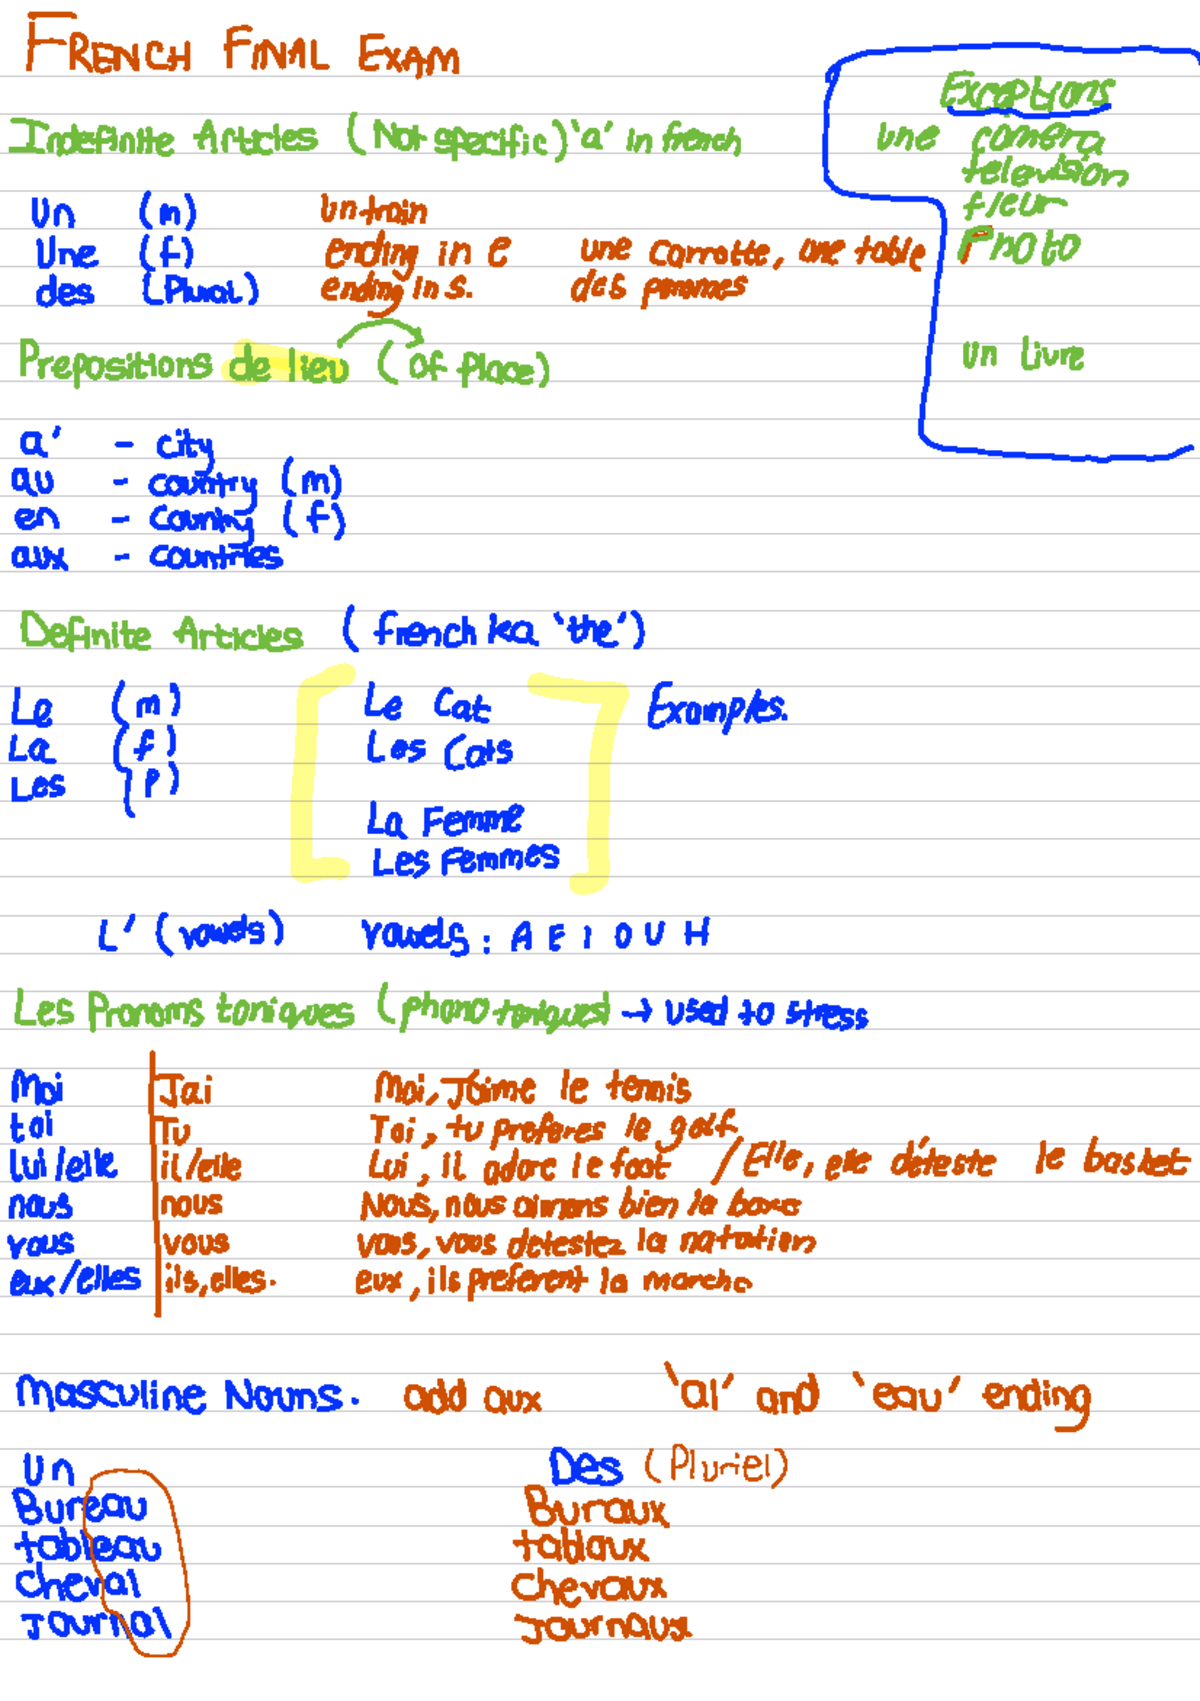 FRENCH FINAL EXAM
Exceptions
Indefinite Articles (Not specific) 'a' in french
une camera
television
fleur
Photo
un Livre
Un (m) Un train
Une (f) ending in e une carrotte, une table
des (Plural) ending in s. des pommes
Prepositions de lieu (of place)
a' - city
au - country (m)
en - country (f)
aux - countries
Definite Articles (french ka 'the')
Le (m) Le Cat Examples.
La (f) Les Cats
Les (P)
La Femme
Les Femmes
L' (vowels) vowels : A E I O U H
Les Pronoms toniques (phono toniques) → used to stress
Moi Jai Moi, J'aime le tennis
toi Tu Toi, tu preferes le golf
lui/elle il/elle Lui, il adore le foot / Elle, elle déteste le basket
nous nous Nous, nous aimons bien la boxe
vous vous vous, vous detestez la natation
eux/elles ils, elles. eux, ils preferent la marche
Masculine Nouns. add aux 'al' and 'eau' ending
Un Des (Pluriel)
Bureau Buraux
tableau tablaux
Cheval Chevaux
Journal Journaux